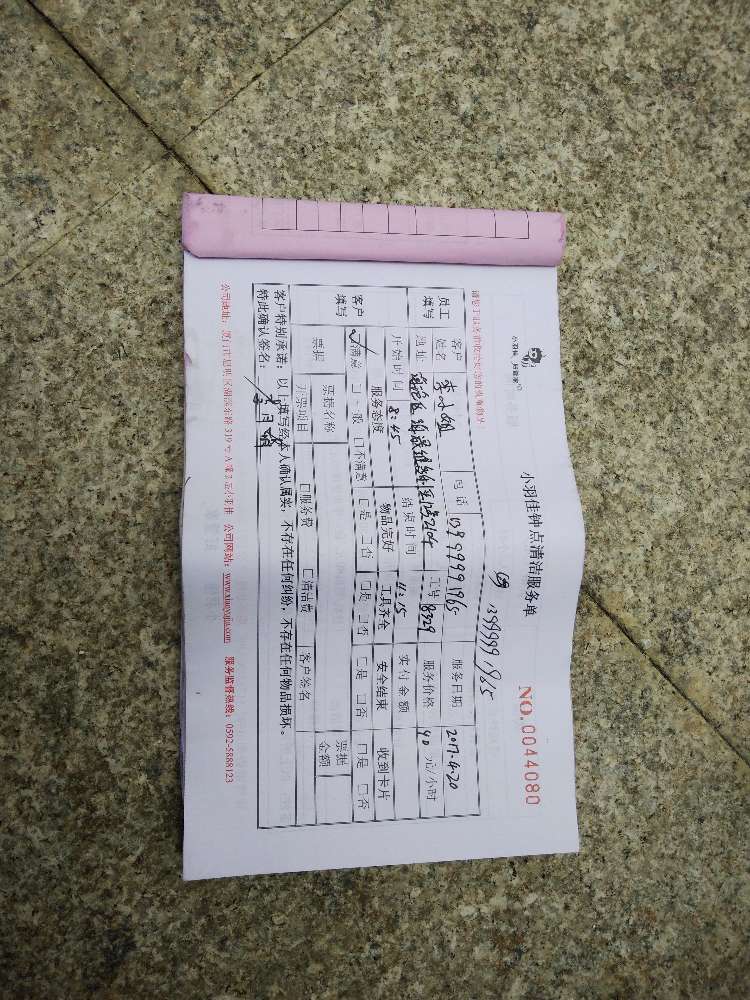 小羽佳钟点清洁服务单
NO.0044080
小羽佳
员工填写 客户姓名 李小姐 电话 服务日期 2017.4.20
地址 工号 8329 服务价格 40 元/小时
开始时间 8:45 结束时间 11:15 实付金额
客户填写 服务态度 物品完好 工具齐全 安全结束 收到卡片
☑满意 □一般 □不满意 □是 □否 □是 □否 □是 □否 □是 □否
票据 票据名称 票据金额
开票项目 □服务费 □清洁费 客户签名
客户特别承诺:以上填写经本人确认属实,不存在任何纠纷,不存在任何物品损坏。
特此确认签名:
公司网站:www.xiaoyujia.com 服务监督热线:0592-5888123